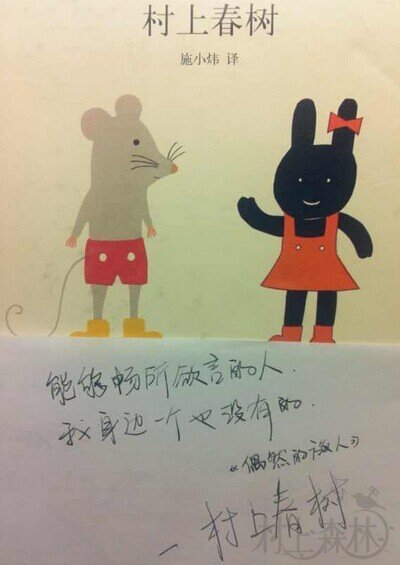 村上春树
施小炜 译
能够畅所欲言的人.
我身边一个也没有的.
《偶然的旅人》
—村上春树
村上森林